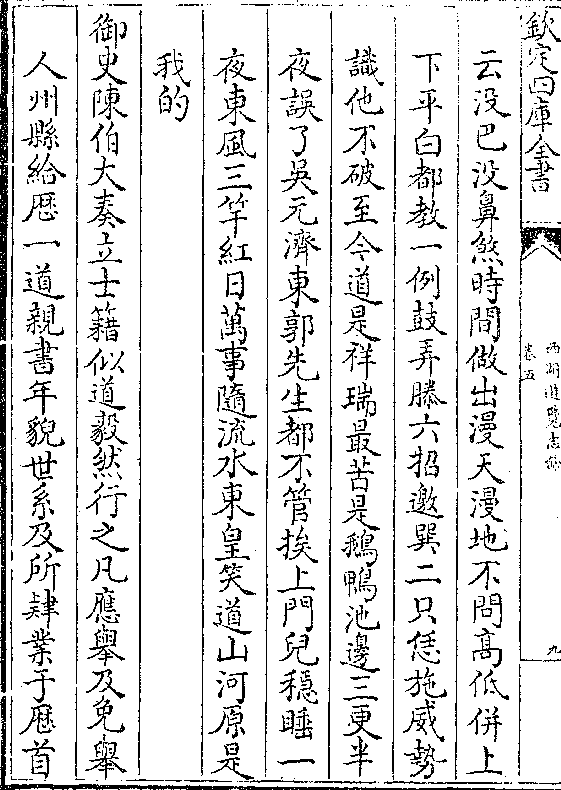 欽定四庫全書
西湖遊覽志餘
卷五
九
云没巴没鼻煞時間做出漫天漫地不問髙低併上
下平白都教一例鼓弄滕六招邀巽二只恁施威勢
識他不破至今道是祥瑞最苦是鵝鴨池邊三更半
夜誤了吳元濟東郭先生都不管挨上門兒穩睡一
夜東風三竿紅日萬事隨流水東皇笑道山河原是
我的
御史陳伯大奏立士籍似道毅然行之凡應舉及免舉
人州縣給厯一道親書年貌世系及所肄業于厯首